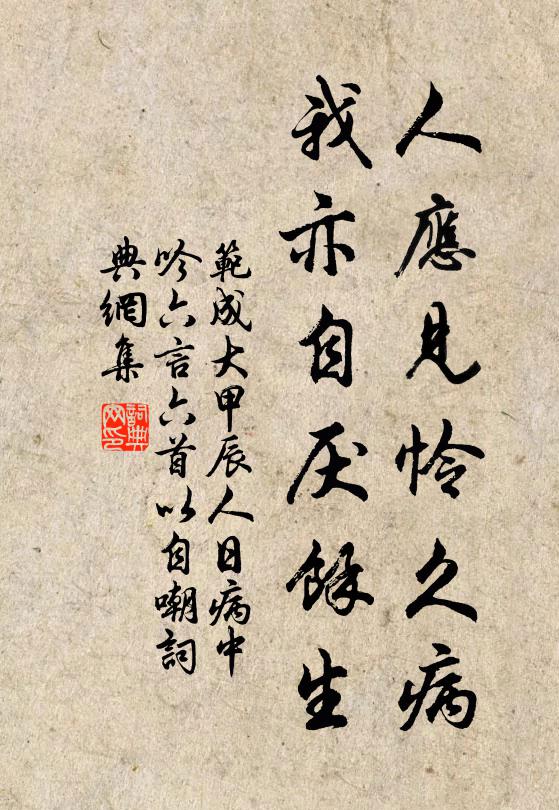 人應見怜久病
我亦自厌餘生
範成大甲辰人日病中
吟六言六首以自嘲詞
典網集
詞典
网印